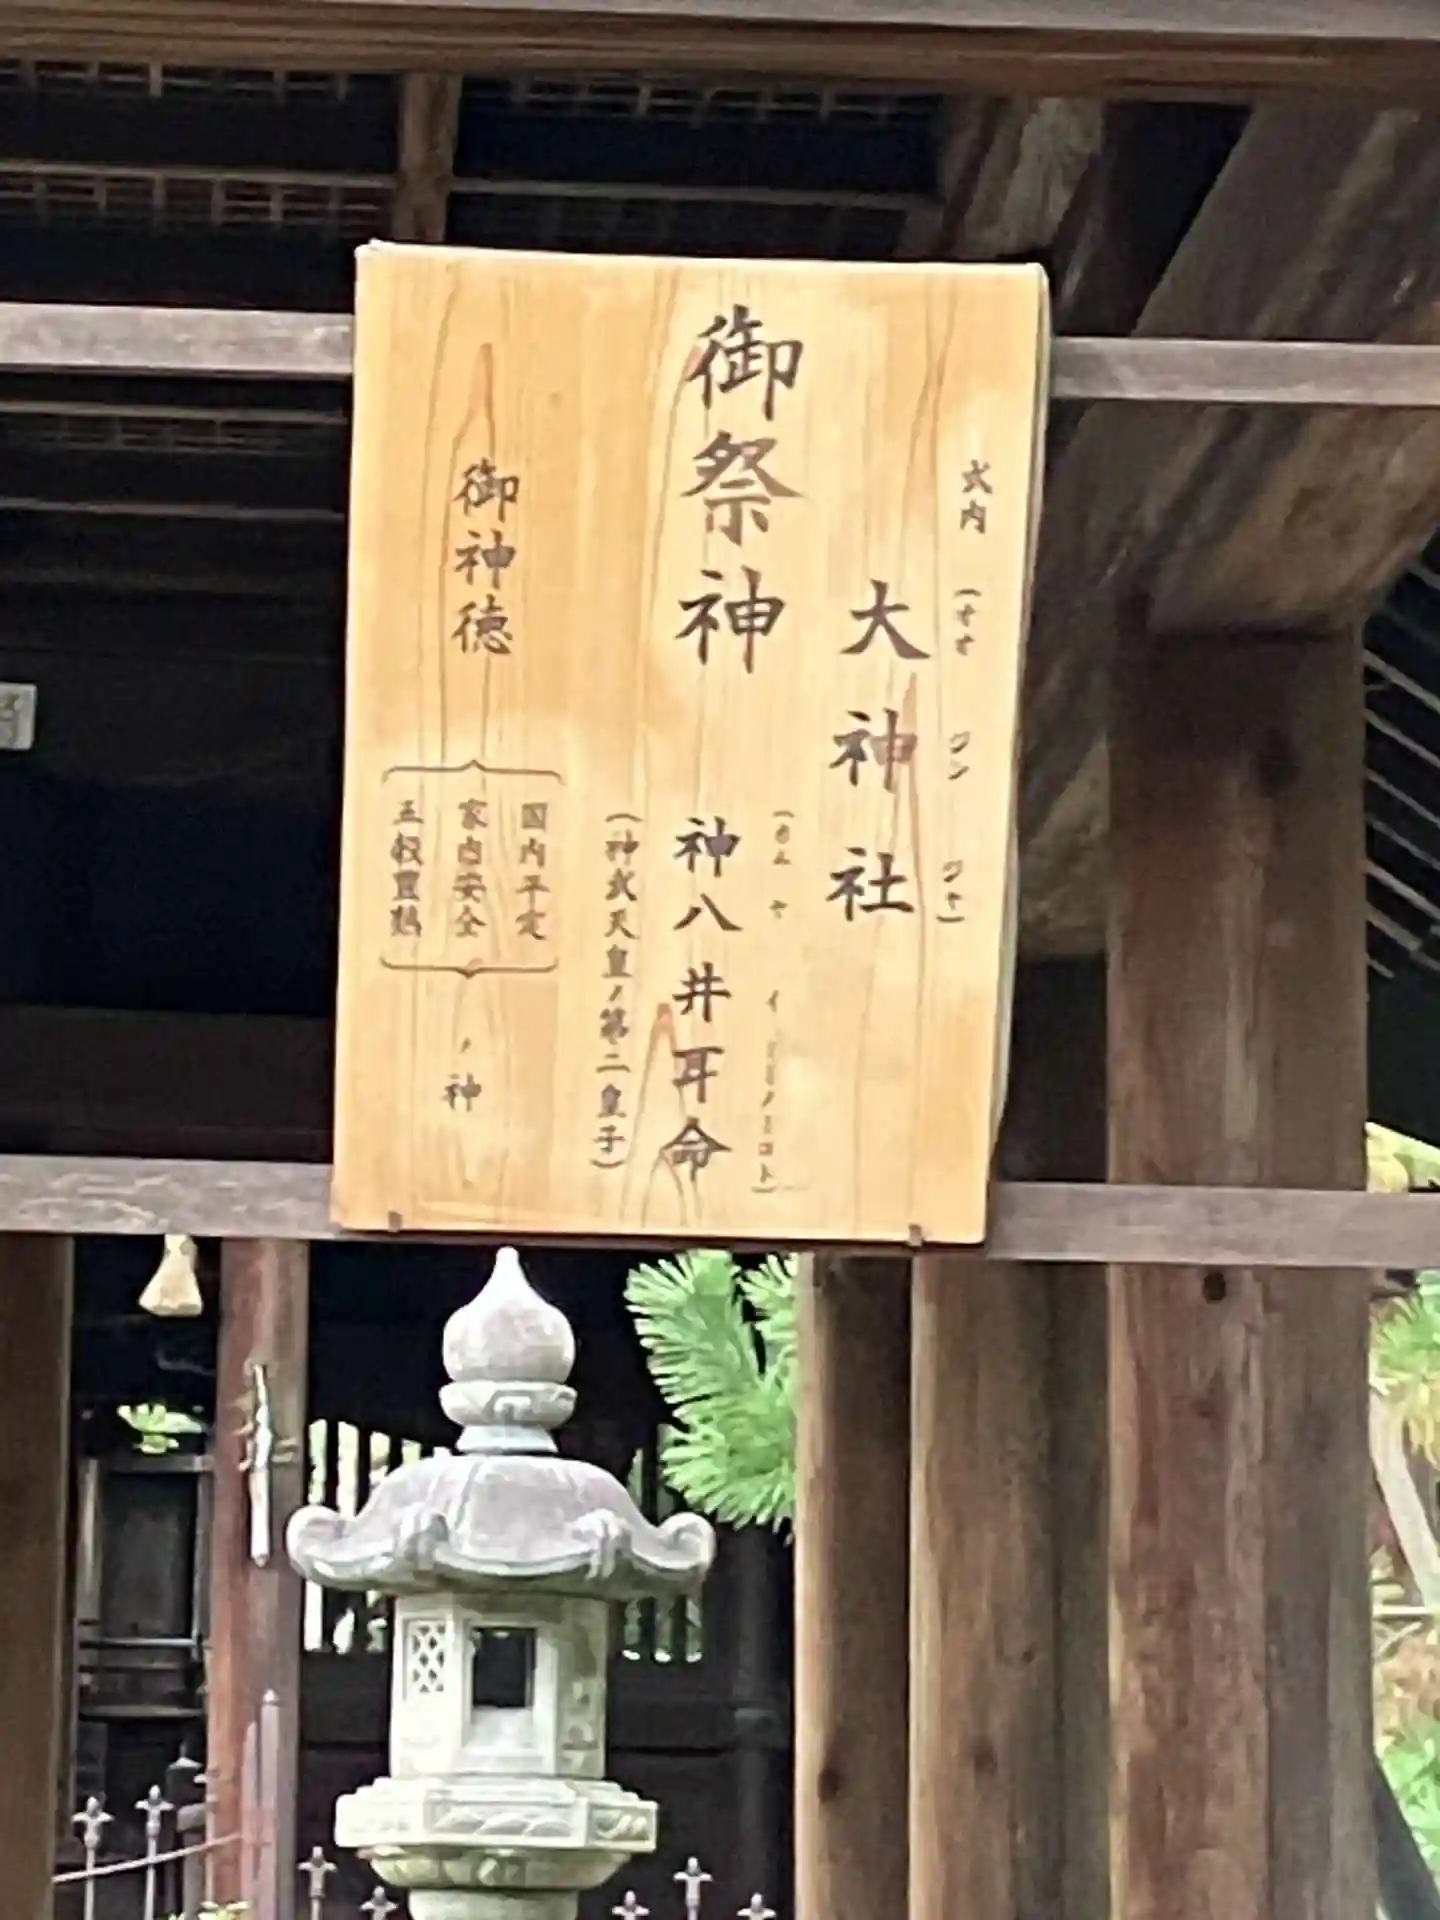 式内
大神社
(オオ ジン ジヤ)
御祭神
神八井耳命
(カムヤ イ ミミノミコト)
(神武天皇ノ第二皇子)
御神徳
国内平定
家内安全
五穀豊熟
ノ神